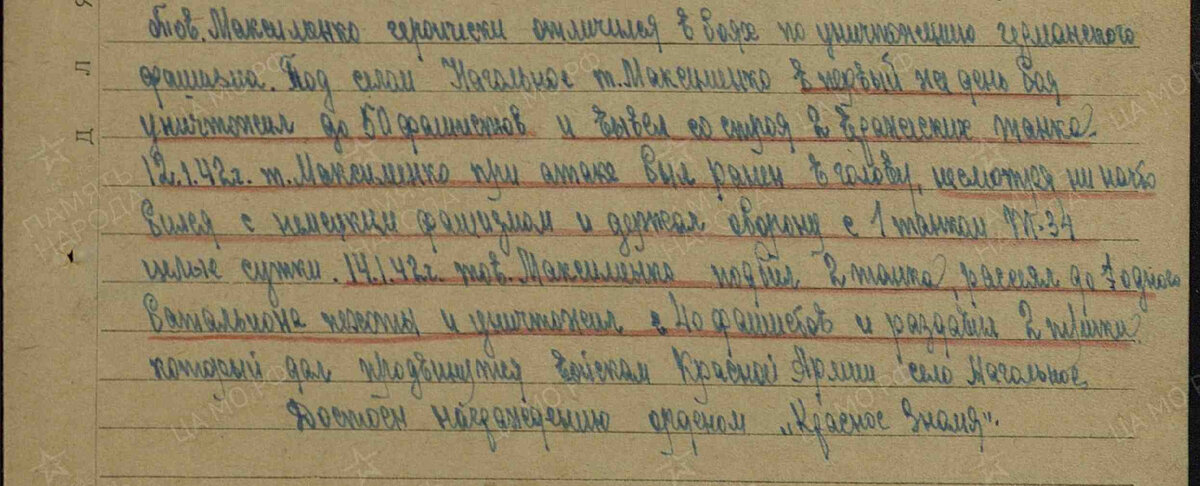 тов. Максименко героически отличился в боях по уничтожению германского
фашизма. Под селом Нагольное т. Максименко в первый же день боя
уничтожил до 50 фашистов и вывел со строя 2 вражеских танка.
12.1.42г. т. Максименко при атаке был ранен в голову, несмотря ни на что
бился с немецким фашизмом и держал оборону с 1 танком Т-34
целые сутки. 14.1.42г. тов. Максименко подбил 2 танка, рассеял до 1 одного
батальона пехоты и уничтожил 40 фашистов и раздавил 2
который дал продвинутся войскам Красной Армии село Нагольное
Достоен награждению орденом „Красное Знамя".
Д Л Я
ПАМЯТЬ НАРОДА
ЦА МО РФ